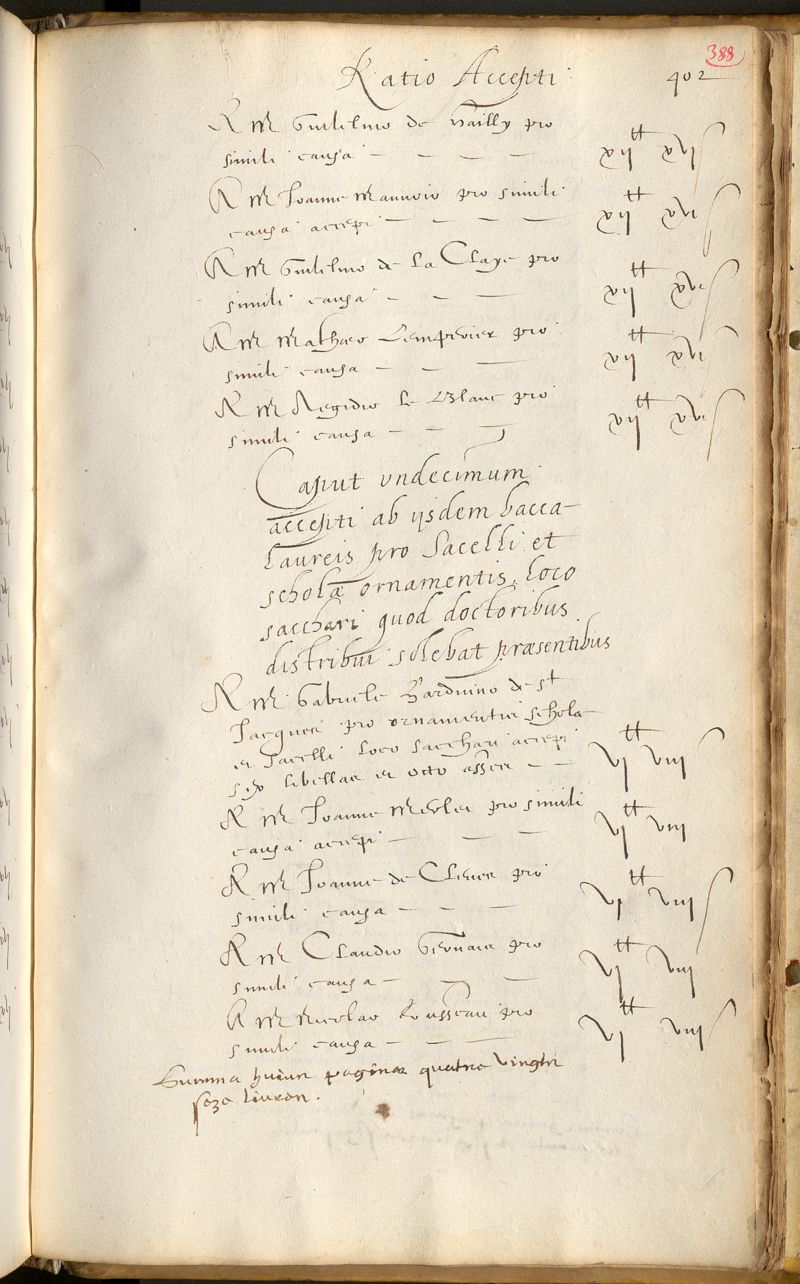 388
Ratio Accepti 402
A M Guilielmo de Vailly pro
simili causa xij tt xvj s
A M Joanne pro simili
causa accepi xij tt xvj s
A M Guilielmo de La Claye pro
simili causa xij tt xvj s
A M Mathaeo pro
simili causa xij tt xvj s
A M Aegidio le Blanc pro
simili causa xij tt xvj s
Caput vndecimum
accepti ab ijsdem bacca-
laureis pro Sacelli et
scholæ ornamentis, loco
sacchari quod doctoribus
distribui solebat præsentibus
A M Gabriele Harduino de St
Jacques pro ornamentis scholae
et sacelli loco sacchari accepi
sex libellas et octo asses vj tt viij s
A M Joanne Merlet pro simili
causa accepi vj tt viij
A M Joanne de pro
simili causa vj tt viij s
A M Claudio Gervaise pro
simili causa vj tt viij
A M Nicolao Rousseau pro
simili causa vj tt viij s
Summa huius paginae quatre vingtz
seze livres.